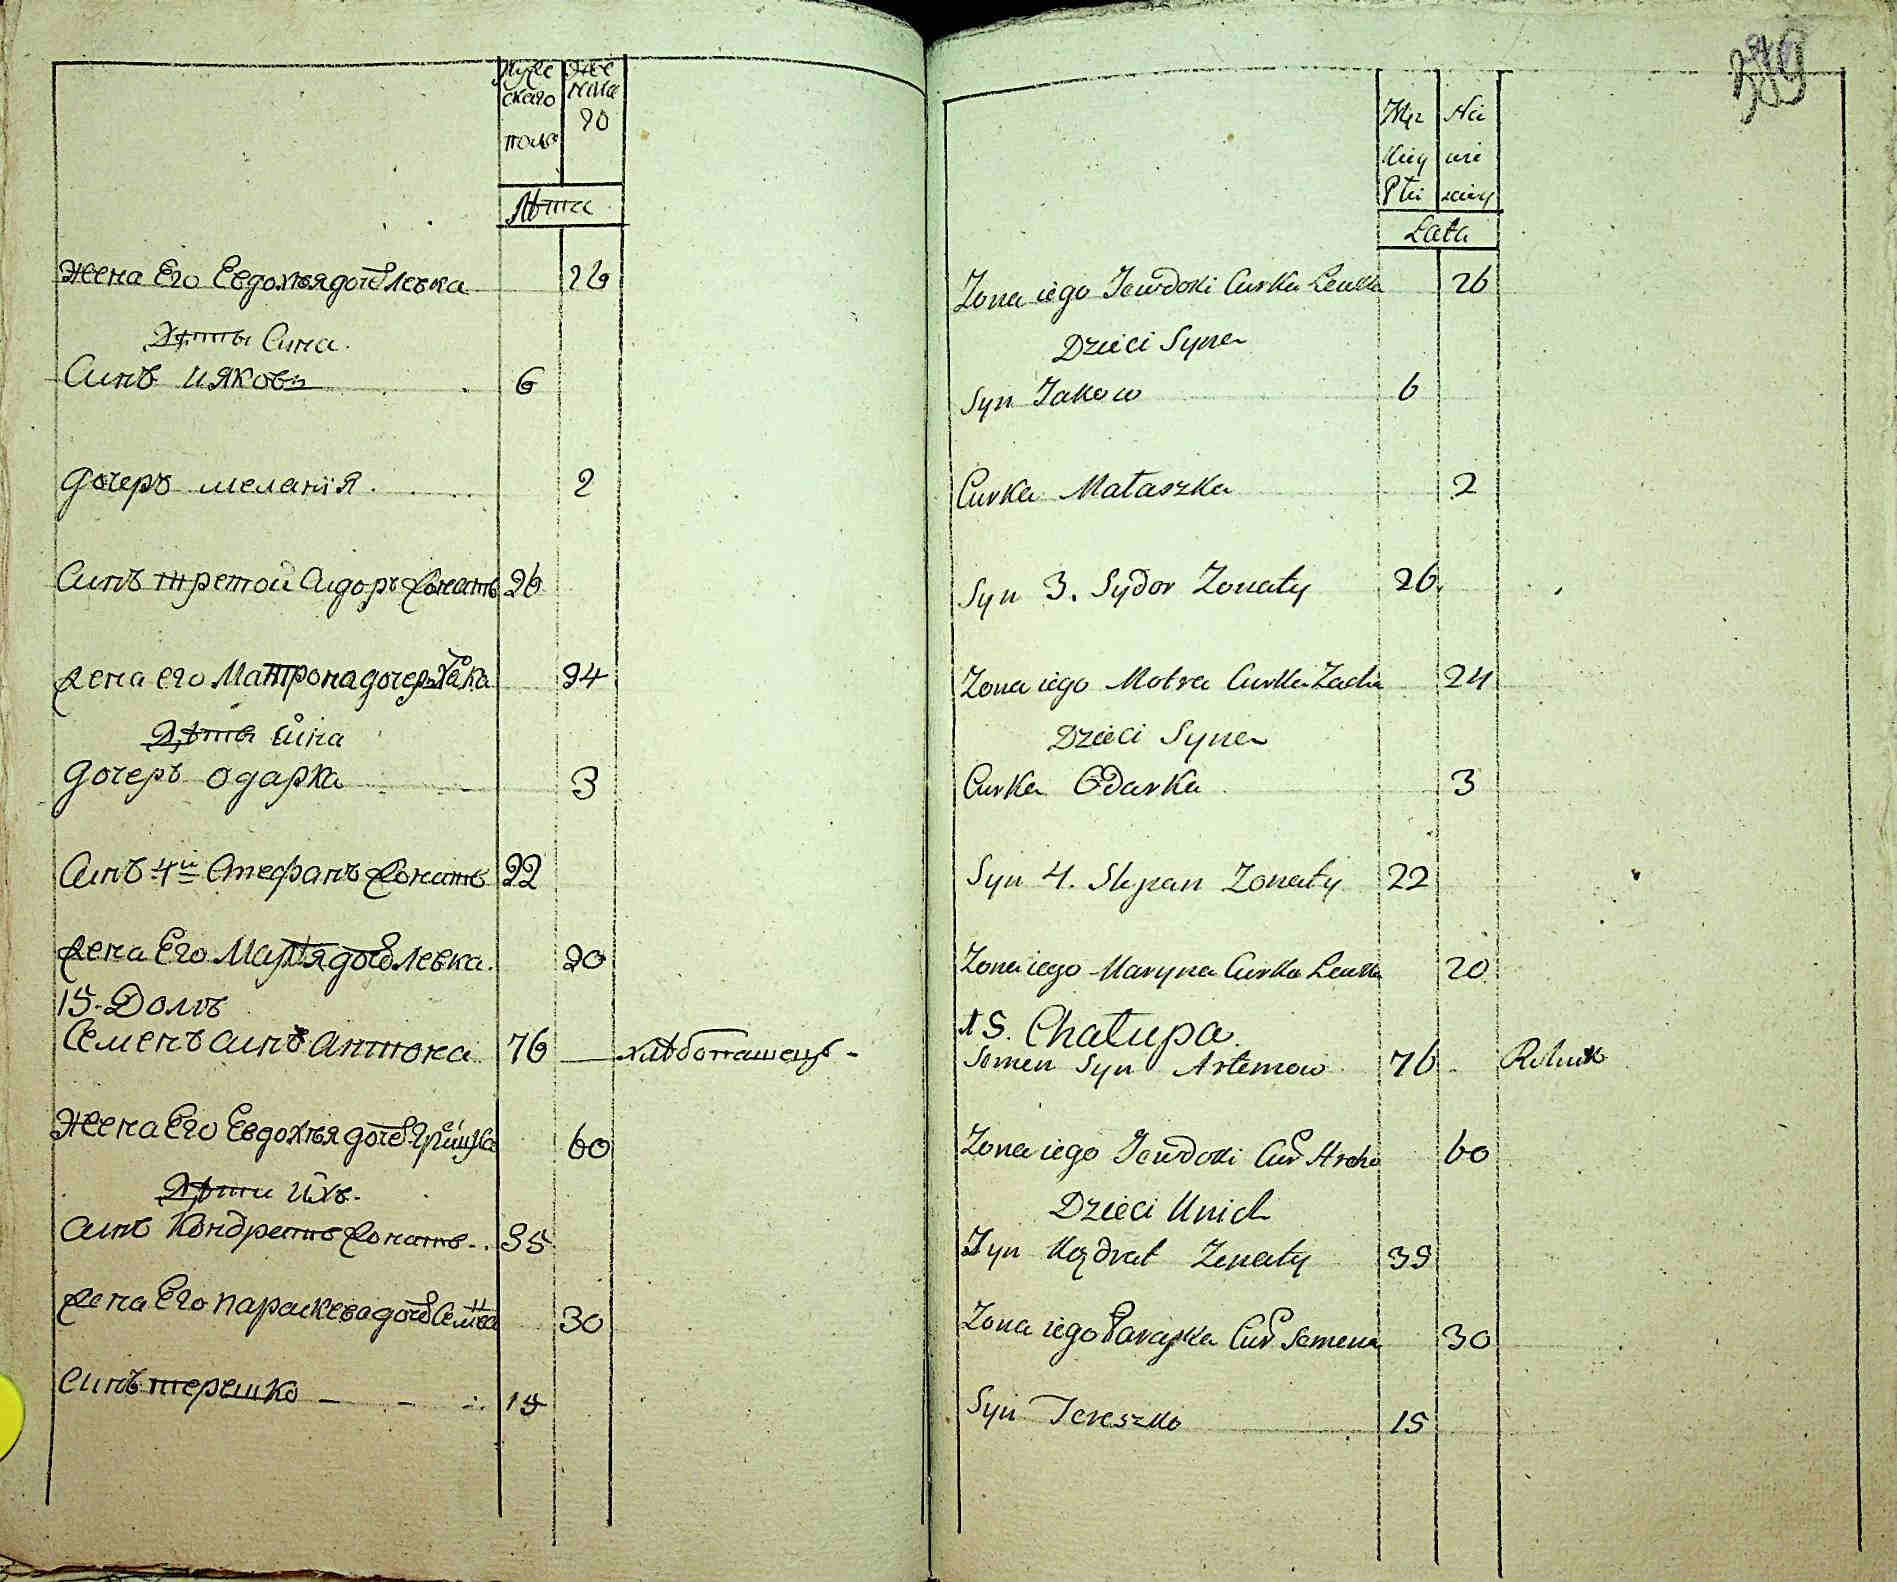 муже
скаго
пола
жее
нска
го
Лѣта
жена Его Евдокия доч Левка 26
Дѣты Сина
Синъ ияковъ 6
дочеръ меланія 2
Синъ третой Сидоръ жонатъ 26
жена его Матрона дочер 24
Дѣты Сина
дочеръ одарка 3
Синъ 4й Стефанъ жонатъ 22
жена Его Марія доч Левка 20
15. Домъ
Семенъ синъ антона 76 хлѣбопашецъ
жена Его Евдокия доч 60
Дѣти ихъ
синъ Кондратъ жонатъ 35
жена Его параскева доч Семена 30
синъ терешко 15
389
Męz
kiey
Płci
Nie
wie
sciey
Lata
Zona iego Jewdoki Curka Lewka 26
Dzieci Syna
Syn Jakow 6
Curka Małaszka 2
Syn 3. Sydor Zonaty 26
Zona iego Motra Curka 24
Dzieci Syna
Curka Odarka 3
Syn 4. Stepan Zonaty 22
Zona iego Maryna Curka Lewka 20
15. Chałupa
Semen Syn Artemow 76 Rolnik
Zona iego Jewdoki Cur 60
Dzieci Unich
Syn Kondrat Zonaty 35
Zona iego Paraska Cur Semena 30
Syn Tereszko 15